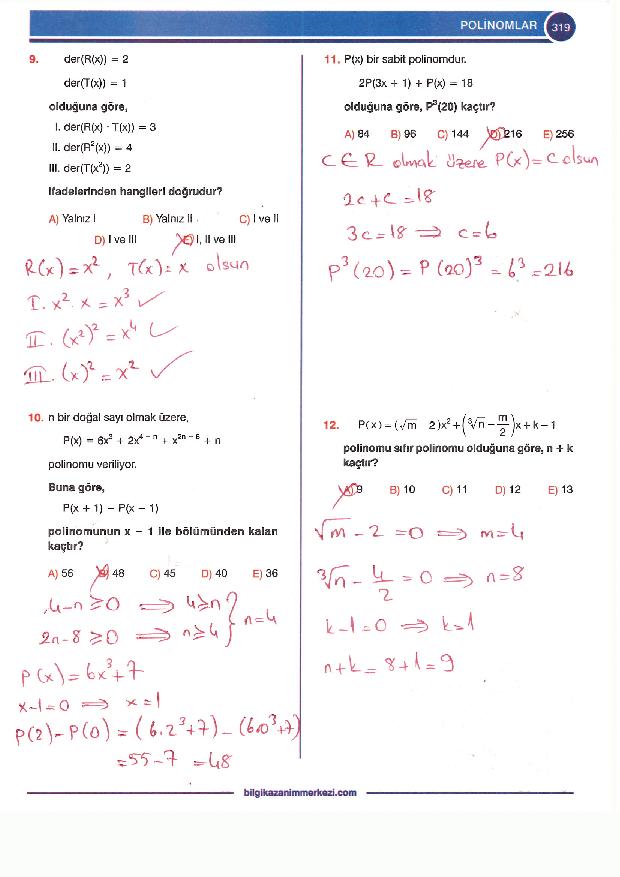 POLİNOMLAR 319
9. der(R(x)) = 2
der(T(x)) = 1
olduğuna göre,
I. der(R(x) · T(x)) = 3
II. der(R²(x)) = 4
III. der(T(x²)) = 2
ifadelerinden hangileri doğrudur?
A) Yalnız I B) Yalnız II C) I ve II
D) I ve III E) I, II ve III
R(x) = x², T(x) = x olsun
I. x² . x = x³ ✓
II. (x²)² = x⁴ ✓
III. (x)² = x² ✓
10. n bir doğal sayı olmak üzere,
P(x) = 6x³ + 2x⁴⁻ⁿ + x²ⁿ⁻⁸ + n
polinomu veriliyor.
Buna göre,
P(x + 1) − P(x − 1)
polinomunun x − 1 ile bölümünden kalan
kaçtır?
A) 56 B) 48 C) 45 D) 40 E) 36
4-n ≥ 0 ⟹ 4 ≥ n
2n-8 ≥ 0 ⟹ n ≥ 4 } n=4
P(x) = 6x³+7
x-1=0 ⟹ x=1
P(2)-P(0) = (6.2³+7) - (6.0³+7)
=55-7 =48
11. P(x) bir sabit polinomdur.
2P(3x + 1) + P(x) = 18
olduğuna göre, P³(20) kaçtır?
A) 84 B) 96 C) 144 D) 216 E) 256
C ∈ R olmak üzere P(x) = C olsun
2c + c = 18
3c = 18 ⟹ c = 6
P³(20) = P(20)³ = 6³ = 216
12. P(x) = (√m 2)x² + (³√n − m/2)x + k − 1
polinomu sıfır polinomu olduğuna göre, n + k
kaçtır?
A) 9 B) 10 C) 11 D) 12 E) 13
√m - 2 = 0 ⟹ m=4
³√n - 4/2 = 0 ⟹ n=8
k-1=0 ⟹ k=1
n+k = 8+1=9
bilgikazanimmerkezi.com